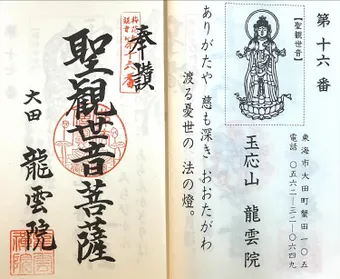 第十六番
【聖観世音】
東海市大田町蟹田一〇五
電話 〇五六二―三二―〇六四九
玉応山 龍雲院
ありがたや 慈も深き おおたがわ
渡る憂世の 法の燈。
奉讃
聖観世音菩薩
大田 龍雲院